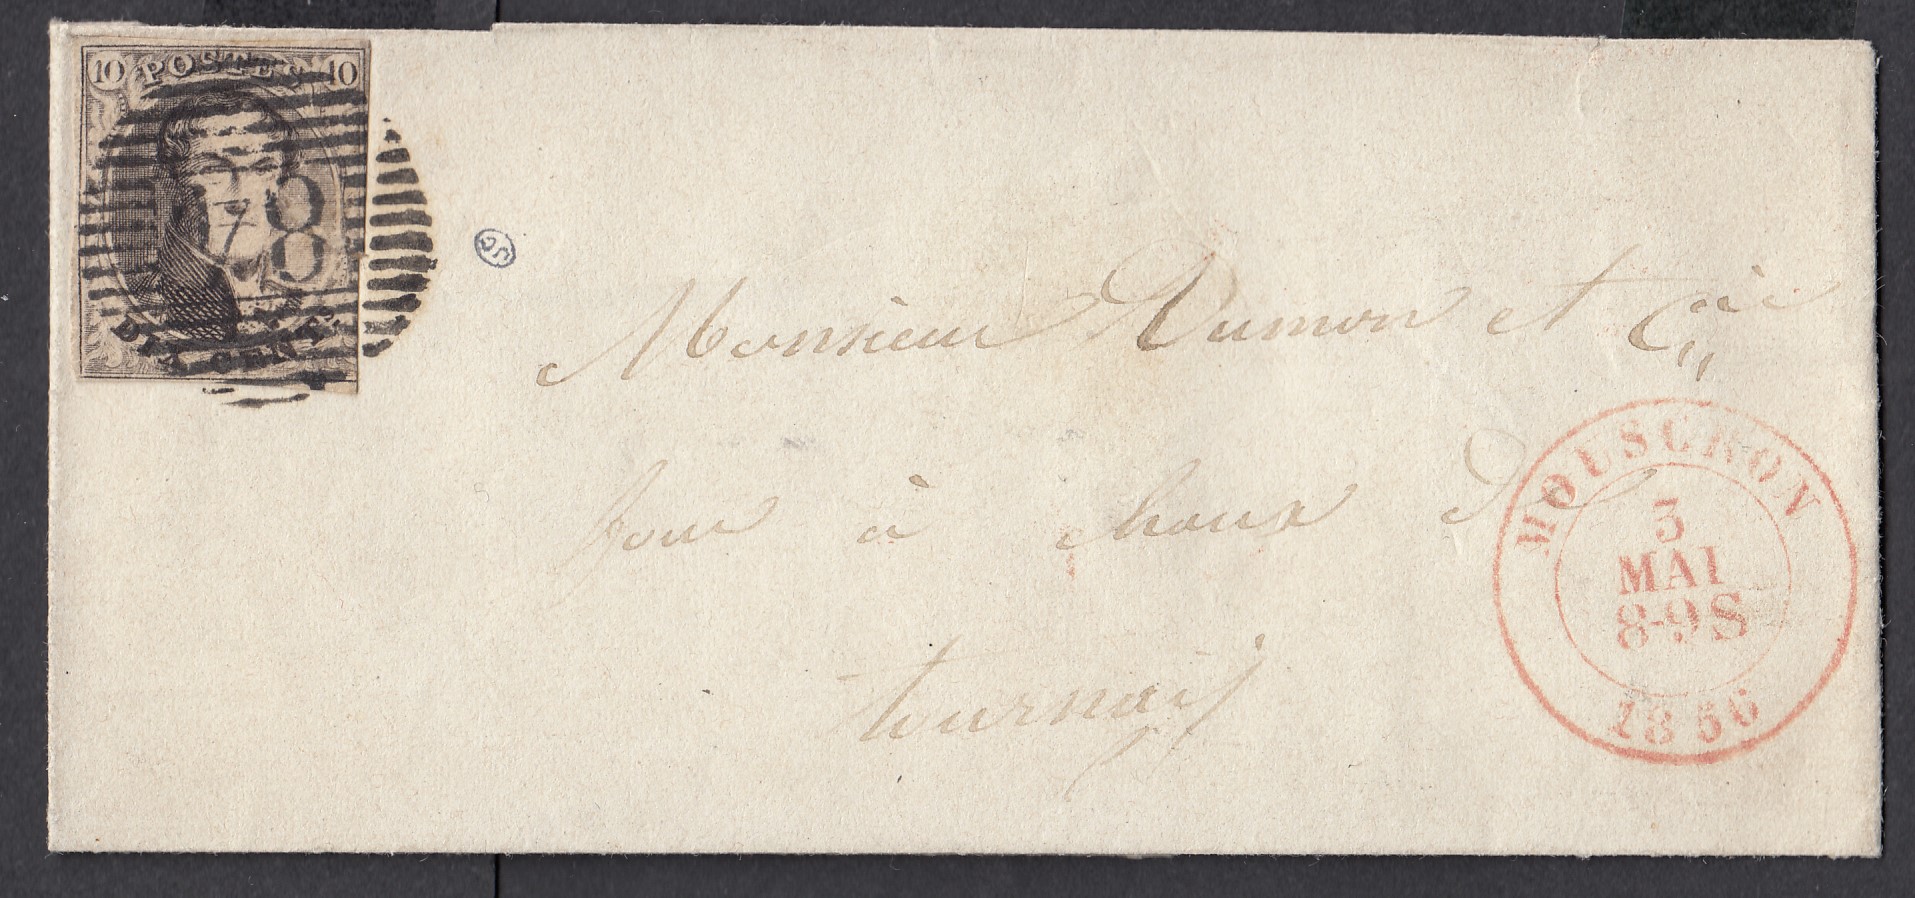 10 POSTES 10
78
DIX CENTS.
Monsieur Dumon et Cie
four à chaux
Tournai
MOUSCRON
3
MAI
8-9S
1856